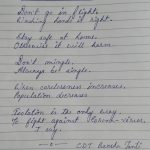 Don't go in flight,
Washing hands it right.
Stay safe at home.
Otherwise it will harm
Don't mingle.
Always be single.
When carelessness increases,
Population decreases
Isolation is the only way.
To fight against
I say.
CDT